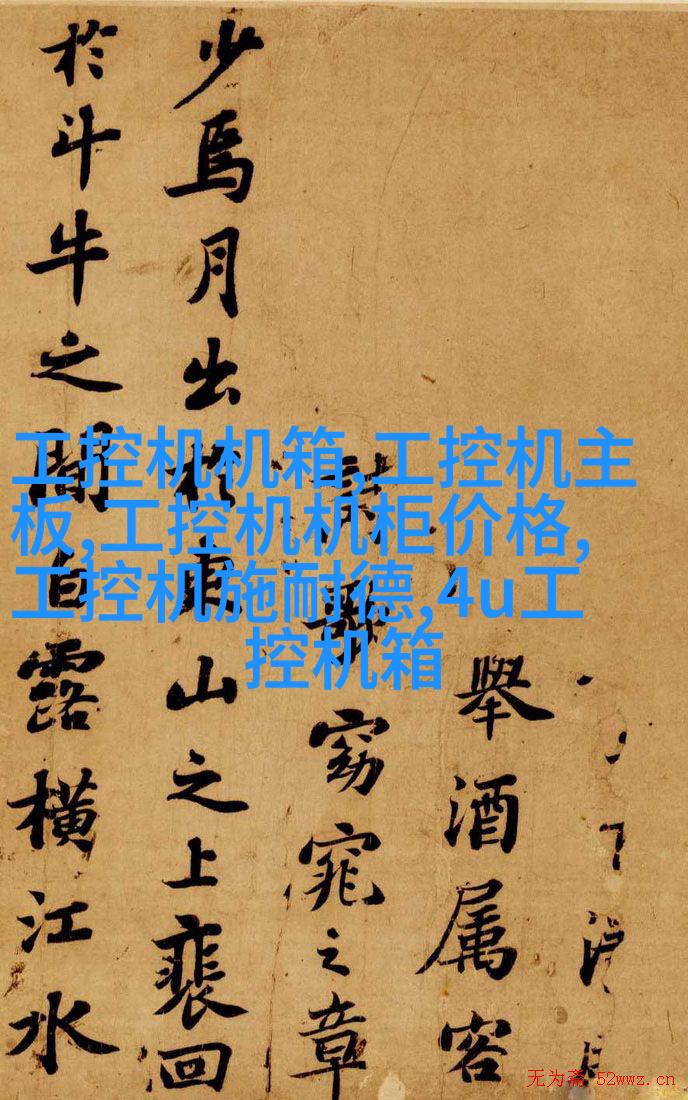 舉酒属客
窈窕之章
少焉月出於東山之上裴回
於斗牛之間白露橫江水
工控机机箱,工控机主
板,工控机机柜价格,
工控机施耐德,4u工
控机箱
无为斋 52wwz.cn